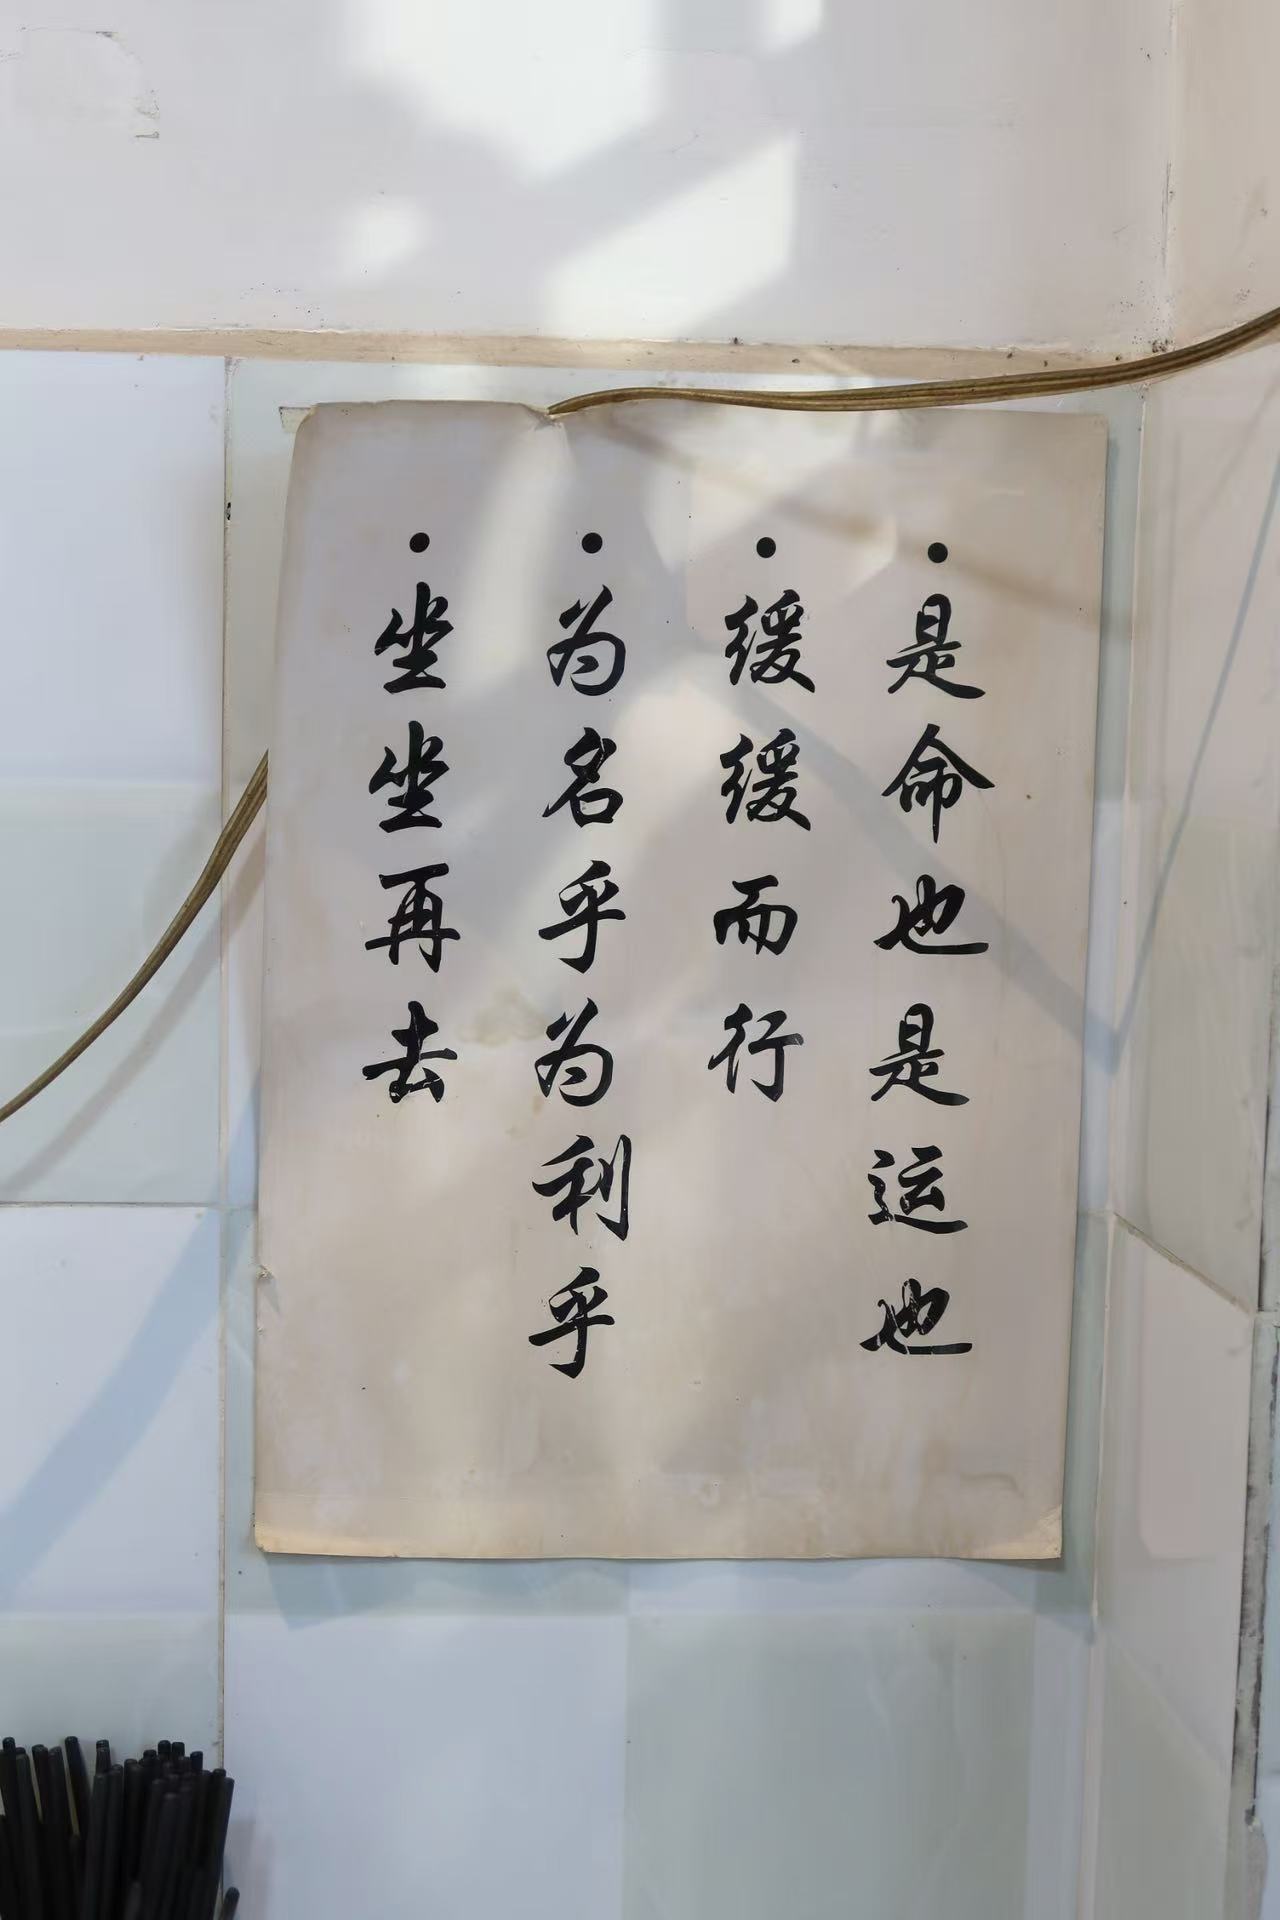 ·是命也是运也
·缓缓而行
·为名乎为利乎
·坐坐再去